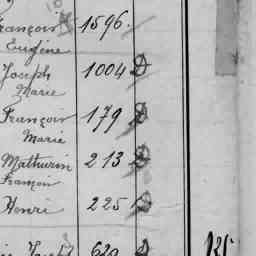 François 1596.
Eugène
Joseph 1004 D
Marie
François 179 D
Marie
Mathurin 213 D
François
Henri 225 D
Joseph 620 D